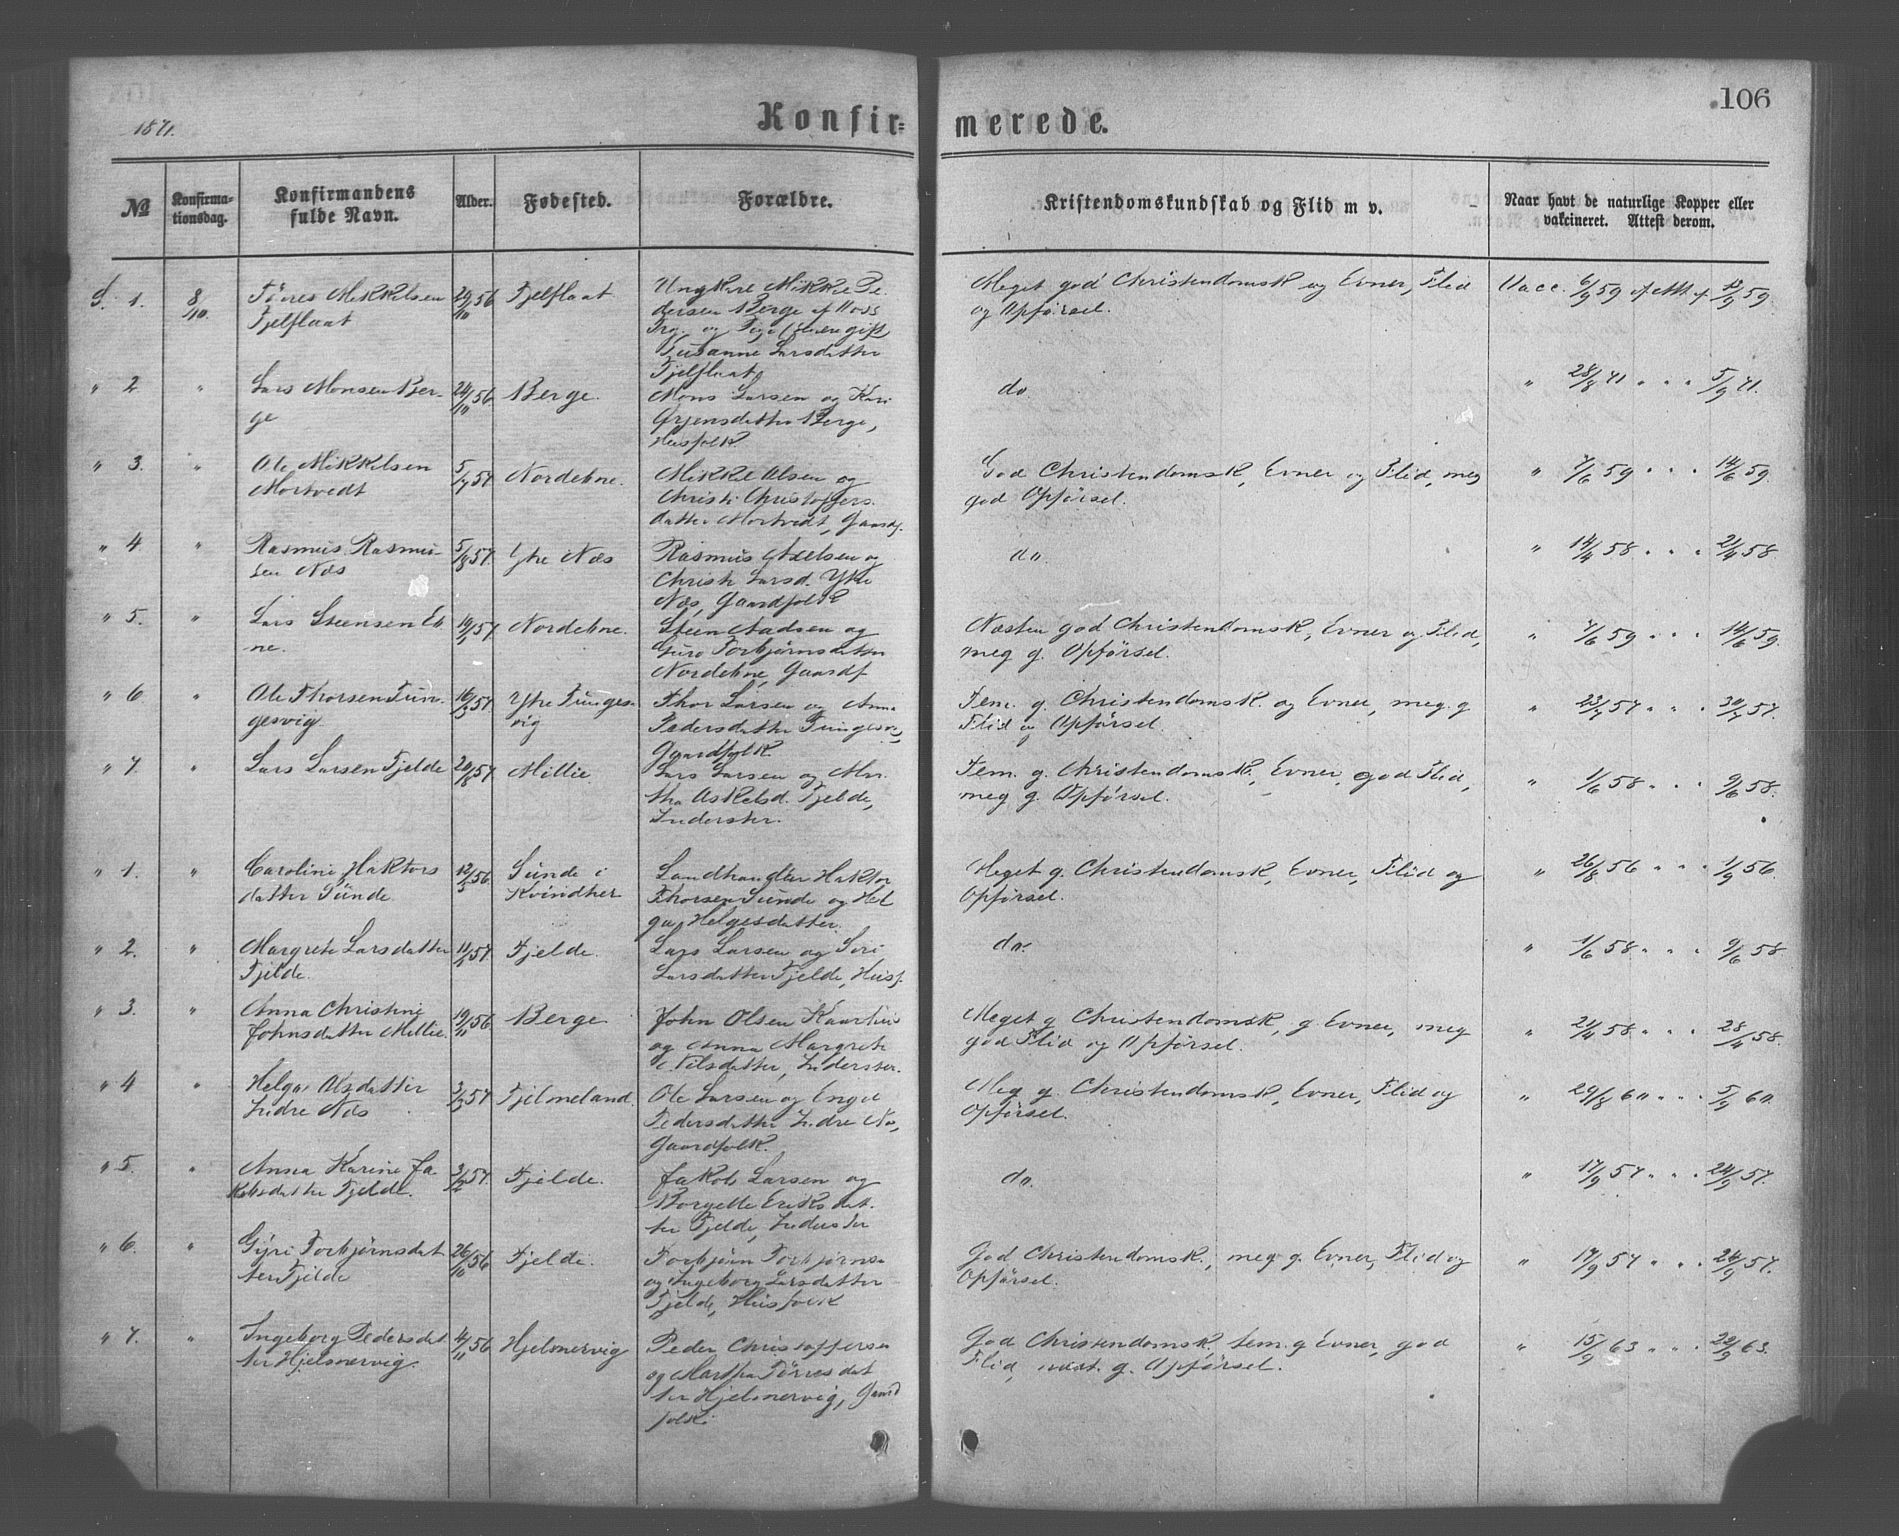 1871.
Konfir=
merede.
106
№
Konfirma-
tionsdag.
Konfirmandens
fulde Navn.
Alder.
Fødested.
Forældre.
Kristendomskundskab og Flid m v.
Naar havt de naturlige Kopper eller
vakcineret. Attest derom.
S. 1. 8/10. Tøres Mikkelsen 29/10 56 Fjelflaat
Fjelflaat
Ungkarl Mikkel Pe
dersen Berge af Voss
Prg. og Pige (senere gift)
Susanne Larsdatter
Fjelflaat
Meget god Christendomsk og Evner, Flid
og Opførsel.
Vacc. 6/9 59 af Att. f. 12/9 59.
" 2 " Lars Monsen Ber- 24/10 56 Berge.
ge
Mons Larsen og Kari
Ørjensdatter Berge,
Husfolk
do
" 28/8 71 " " " 5/9 71.
" 3. " Ole Mikkelsen 5/7 57 Nordebne.
Mortvedt
Mikkel Olsen og
Christi Christoffers
datter Mortvedt, Gaardf.
God Christendomsk, Evner og Flid, meg
god Opførsel.
" 7/6 59 " " " 14/6 59.
" 4 " Rasmus Rasmu- 5/8 57. Ytre Næs
sen Næs
Rasmus Axelsen og
Christi Larsd. Ytre
Næs, Gaardfolk
do.
" 14/4 58 " " " 21/4 58.
" 5. " Lars Steensen Eb 57 Nordebne.
ne.
Steen Aadsen og
Guro Torbjørnsdatter
Nordebne, Gaardf
Næsten god Christendomsk, Evner og Flid,
meg g. Opførsel.
" 7/6 59 " " " 14/6 59.
" 6 " Ole Thorsen Tun- 16/3 57. Ytre Tunges-
gesvig vig
Thor Larsen og Anna
Pedersdatter Tungesv.,
Gaardfolk
Tem. g. Christendomsk. og Evner, meg. g
Flid og Opførsel.
" 23/7 57 " " " 30/7 57.
" 7. " Lars Larsen Fjelde 20/8 57 Millie
Lars Larsen og Mar
tha Askelsd. Fjelde,
Inderster.
Tem. g. Christendomsk., Evner, god Flid,
meg g. Opførsel.
" 1/6 58 " " " 9/6 58.
" 1. " Caroline Haktors 12/5 56. Sunde i
datter Sunde. Kvindher
Landhandler Haktor
Thorsen Sunde og Hel
ga Helgesdatter.
Meget g. Christendomsk, Evner, Flid og
Opførsel.
" 26/8 56 " " " 1/9 56.
" 2. " Margrete Larsdatter 57. Fjelde.
Fjelde.
Lars Larsen og Siri
Larsdatter Fjelde, Husf.
do.
" 1/6 58 " " " 9/6 58
" 3. " Anna Christine 19/11 56. Berge
Johnsdatter Millie.
John Olsen
og Anna Margrete
Nilsdatter, Inderster.
Meget g. Christendomsk, g. Evner, meg
god Flid og Opførsel.
" 21/4 58 " " " 28/4 58.
" 4 " Helga Olsdatter 3/3 57 Fjelmeland.
Indre Næs
Ole Larsen og Engel
Pedersdatter Indre Næs,
Gaardfolk.
Meg g. Christendomsk, Evner, Flid og
Opførsel.
" 29/8 60 " " " 5/9 60.
" 5. " Anna Karine Ja 3/2 57. Fjelde.
kobsdatter Fjelde.
Jakob Larsen og
Borgelle Eriksdat.
ter Fjelde, Inderster
do.
" 17/9 57 " " " 24/9 57.
" 6. " Gyri Torbjørnsdat 26/10 56 Fjelde.
ter Fjelde
Torbjørn Torbjørnsen
og Ingeborg Larsdatter
Fjelde, Husfolk
God Christendomsk., meg g. Evner, Flid og
Opførsel.
" 17/9 57 " " " 24/9 57.
" 7. " Ingeborg Pedersdat 4/11 56 Hjelmervig
ter Hjelmervig.
Peder Christoffersen
og Martha Tørresdat
ter Hjelmervig, Gaard
folk.
God Christendomsk., tem. g Evner, god
Flid, udst. g. Opførsel.
" 15/9 63 " " " 22/9 63.